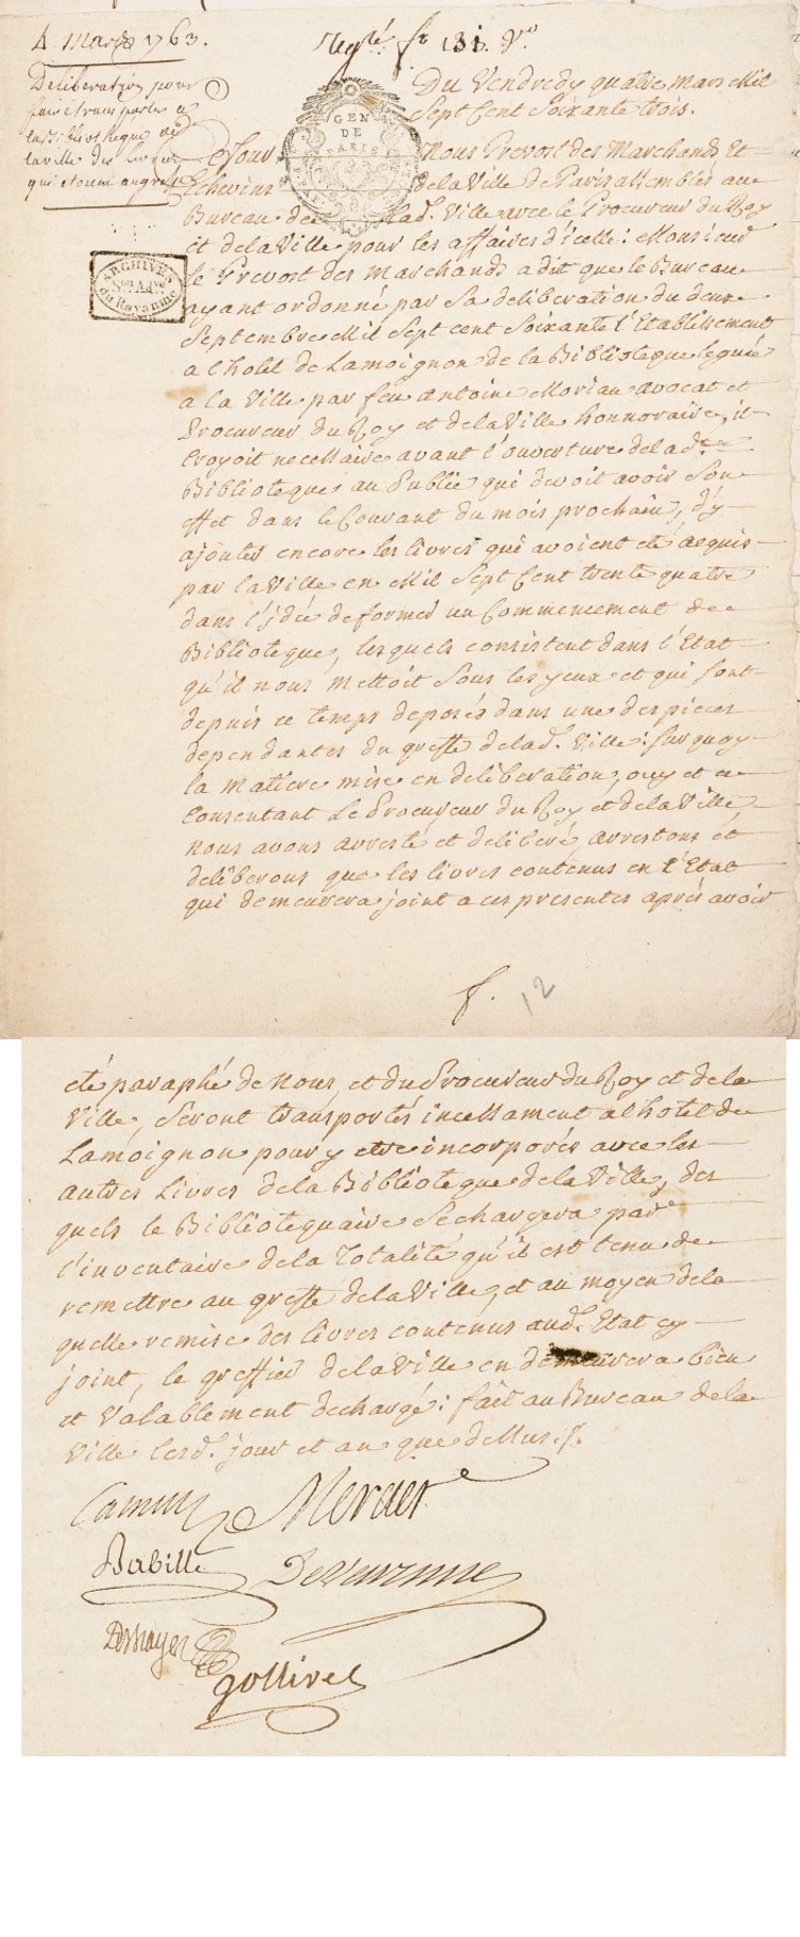 4 Mars 1763.
Reg.té f.o 131. V.o
Deliberation pour
faire transporter a
la Bibliotheque de
la ville des livres
qui etoient au greffe
GEN
DE
PARIS
ARCHIVES
Son Adve
du Royaume
Du Vendredy quatre mars Mil
Sept Cent Soixante trois.
Ce Jour Nous Prevost des Marchands Et
Echevins de la Ville De Paris assemblés au
Bureau de lad. Ville avec le Procureur du Roy
et de la Ville pour les affaires d'icelle: Monsieur
le Prevost des Marchands a dit que le Bureau
ayant ordonné par Sa deliberation du deux
Septembre Mil Sept cent Soixante l'Etablissement
a l'hotel de Lamoignon de la Biblioteque leguée
a la Ville par feu Antoine Moriau avocat et
Procureur du Roy et de la Ville honnoraire, il
Croyoit necessaire avant l'ouverture de lad.
Biblioteque au Public qui devoit avoir Son
effet dans le Courant du mois prochain, d'y
ajouter encore les livres qui avoient eté acquis
par la Ville en Mil Sept Cent trente quatre
dans l'jdée de former un Commencement de
Biblioteque, lesquels consistent dans l'Etat
qu'il nous mettoit Sous les yeux et qui sont
depuis ce temps deposés dans une des pieces
dependantes du greffe de lad. Ville: Sur quoy
la matiere mise en deliberation, ouy et ce
Consentant Le Procureur du Roy et de la Ville,
nous avons arresté et deliberé, arrestons et
deliberons que les livres contenus en l'Etat
qui demeurera joint a ces presentes aprés avoir
12
eté paraphé de Nous, et du Procureur du Roy et de la
Ville, Seront transportés incessament a l'hotel de
Lamoignon pour y etre incorporés avec les
autres Livres de la Biblioteque de la Ville, des
quels le Bibliotequaire Se chargera par
l'inventaire de la Totalité qu'il est tenu de
remettre au greffe de la Ville, et au moyen de la
quelle remise des livres contenus aud. Etat cy
joint, le greffier de la Ville en demeurera bien
et Valablement dechargé: fait au Bureau de la
Ville lesd. jour et an que dessus./.
Camus Mercier
Babille De Varenne
Deshayes
Jollivet